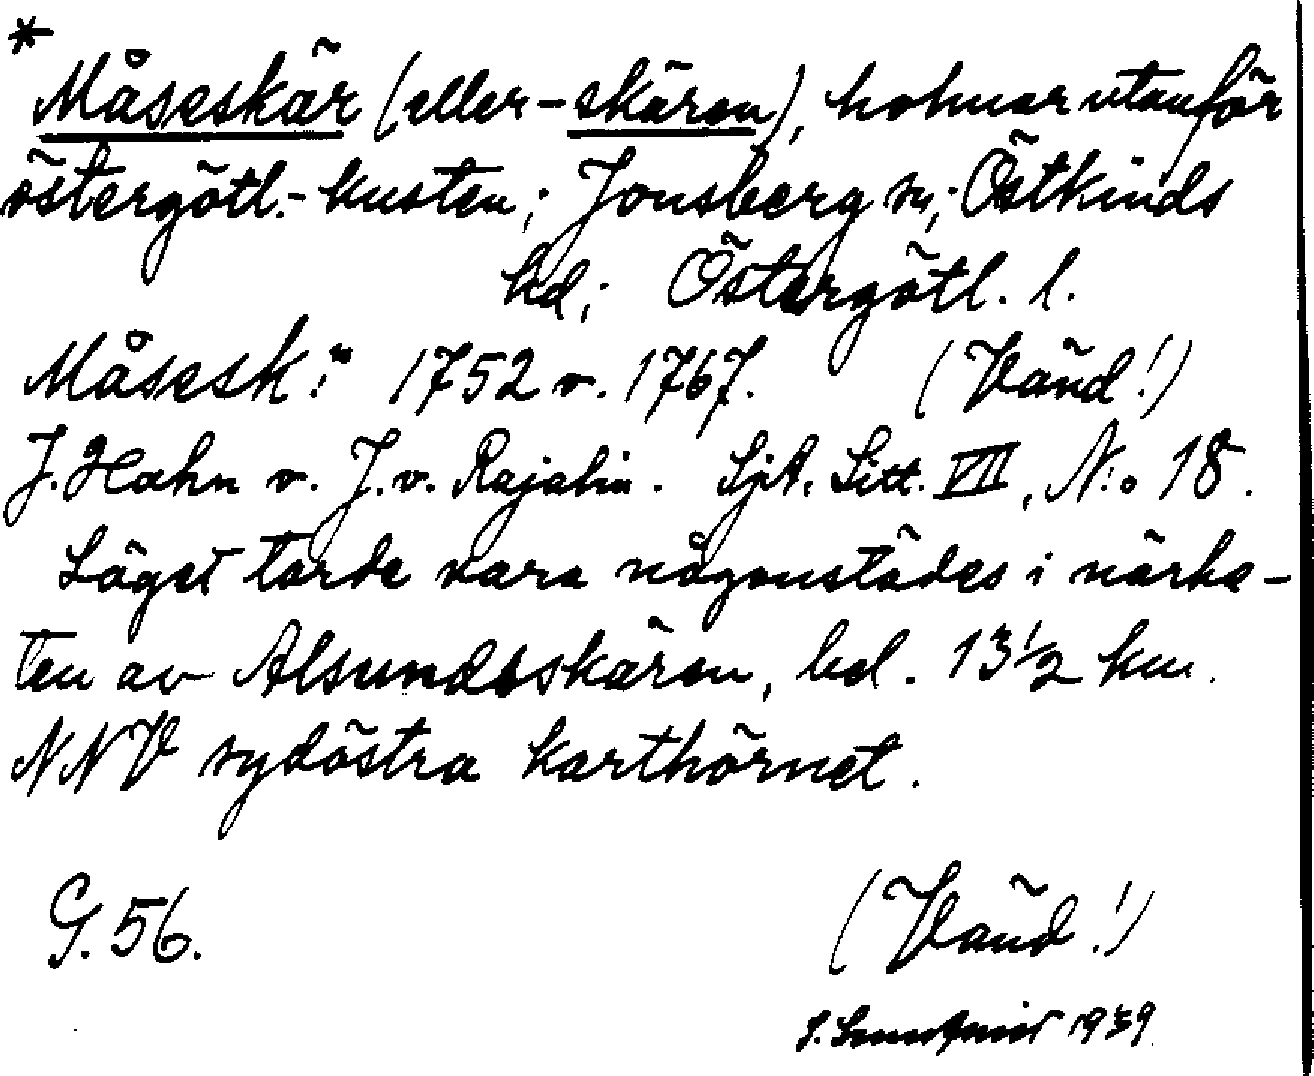 *
Måseskär (eller -skären), holmar utanför
östergötl.-kusten; Jonsberg sn; Östkinds
hd; Östergötl. l.
Måsesk:n 1752 v. 1767. (Vänd!)
J. Hahn v. J. v. Rajalin. SjA. Litt. VII, N:o 18.
Läget torde vara någonstädes i närhe-
ten av Alsundsskären, bel. 13½ km
NNV sydöstra karthörnet.
G. 56. (Vänd!)
1939